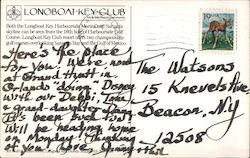 LONGBOAT KEY CLUB
Both the Longboat Key Harbourside Marina and Sarasota
skyline can be seen from the 18th hole of Harbourside Golf
Course. Longboat Key Club resort offers two championship
golf courses overlooking Sarasota Bay and the Gulf of Mexico.
Here's the place
for you! Were now
at Grand Hyatt in
Orlando "doing" Disney
with our Debbi, Jake &
grand-daughter
It's been such fun!
Will be heading home
on Monday - Thinking
of you. Love, Jimmy
+ Phil
19
The Watsons
15 Knevels Ave.
Beacon, Ny
12508